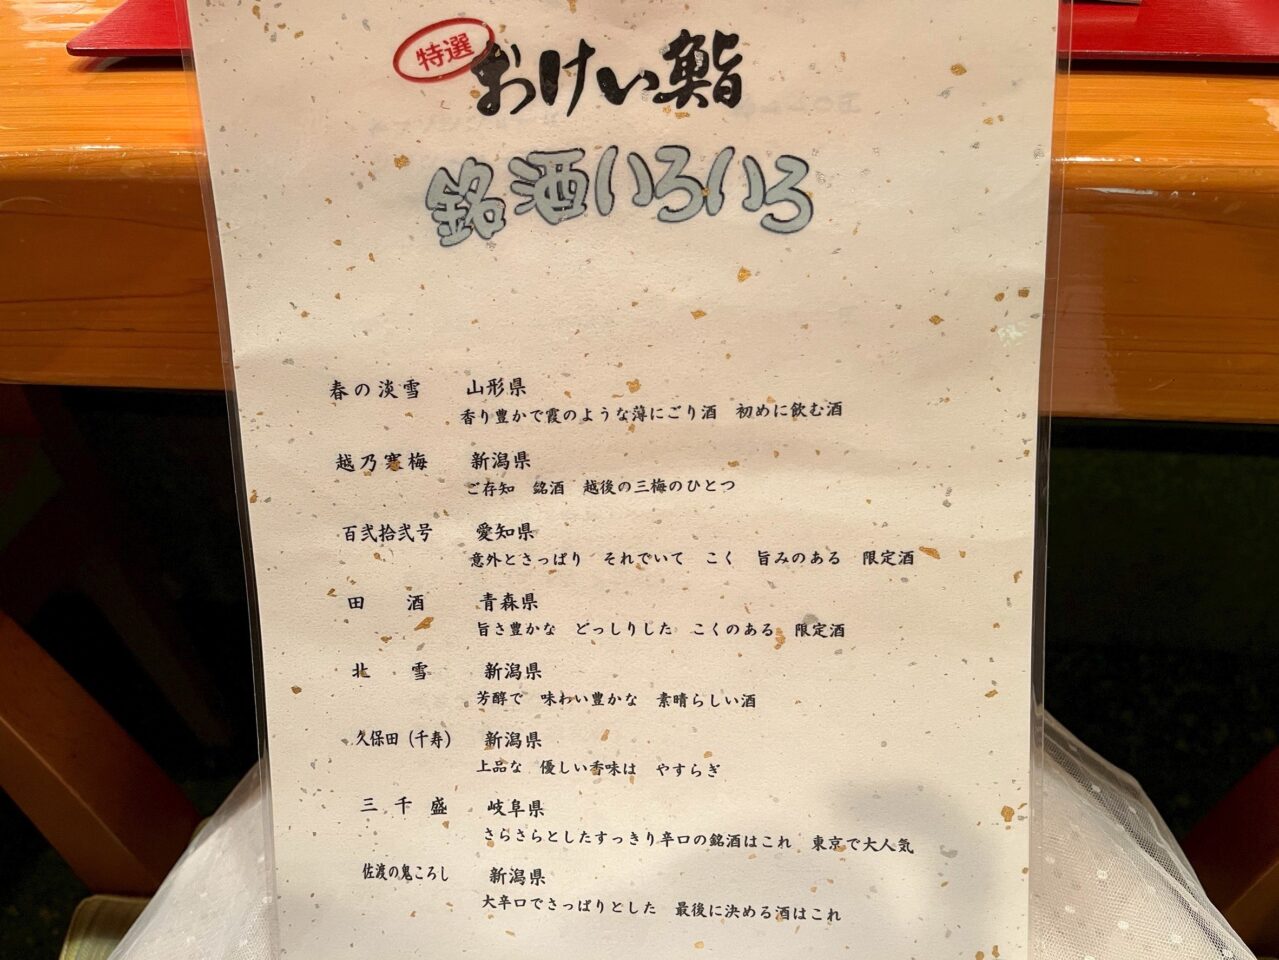 特選
おけい鮨
銘酒いろいろ
春の淡雪 山形県
香り豊かで霞のような薄にごり酒 初めに飲む酒
越乃寒梅 新潟県
ご存知 銘酒 越後の三梅のひとつ
百弐拾弐号 愛知県
意外とさっぱり それでいて こく 旨みのある 限定酒
田 酒 青森県
旨さ豊かな どっしりした こくのある 限定酒
北 雪 新潟県
芳醇で 味わい豊かな 素晴らしい酒
久保田(千寿) 新潟県
上品な 優しい香味は やすらぎ
三千盛 岐阜県
さらさらとしたすっきり辛口の銘酒はこれ 東京で大人気
佐渡の鬼ころし 新潟県
大辛口でさっぱりとした 最後に決める酒はこれ